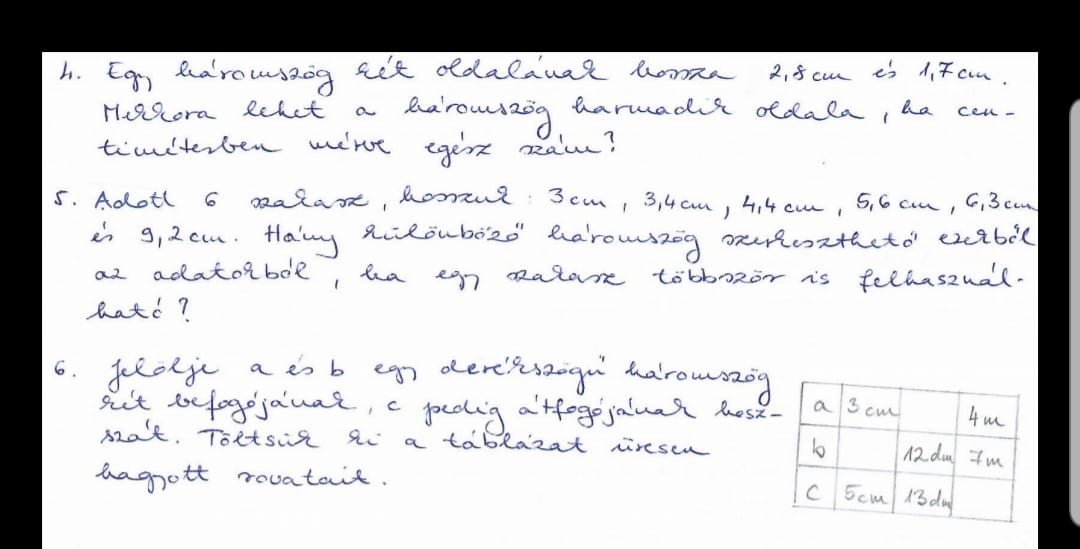 4. Egy háromszög két oldalának hossza 2,8 cm és 1,7 cm.
Mekkora lehet a háromszög harmadik oldala, ha cen-
timéterben mérve egész szám?
5. Adott 6 szakasz, hosszuk: 3cm, 3,4cm, 4,4cm, 5,6cm, 6,3cm
és 9,2cm. Hány különböző háromszög szerkeszthető ezekből
az adatokból, ha egy szakasz többször is felhasznál-
ható?
6. Jelölje a és b egy derékszögű háromszög
két befogójának, c pedig átfogójának hosz-
szát. Töltsük ki a táblázat üresen
hagyott rovatait.
a 3cm 4m
b 12dm 7m
c 5cm 13dm